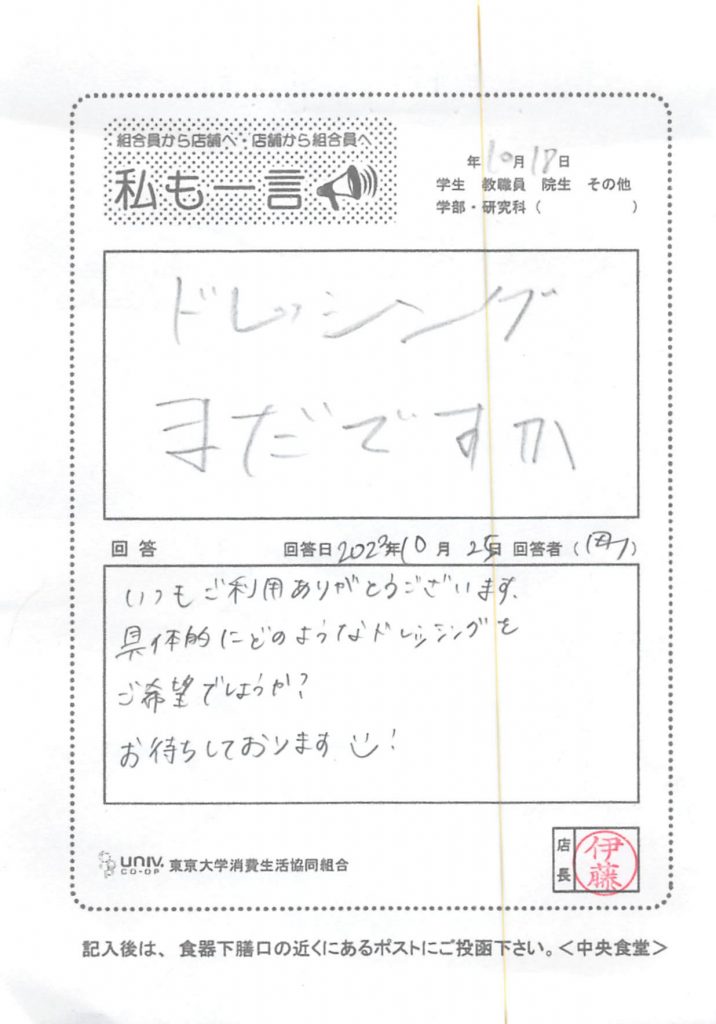 組合員から店舗へ・店舗から組合員へ
私も一言
年10月18日
学生 教職員 院生 その他
学部・研究科（ ）
ドレッシング
まだですか
回答 回答日2023年10月25日 回答者（ ）
いつもご利用ありがとうございます。
具体的にどのようなドレッシングを
ご希望でしょうか？
お待ちしております!
UNIV. CO-OP 東京大学消費生活協同組合
店長 伊藤
記入後は、食器下膳口の近くにあるポストにご投函下さい。＜中央食堂＞